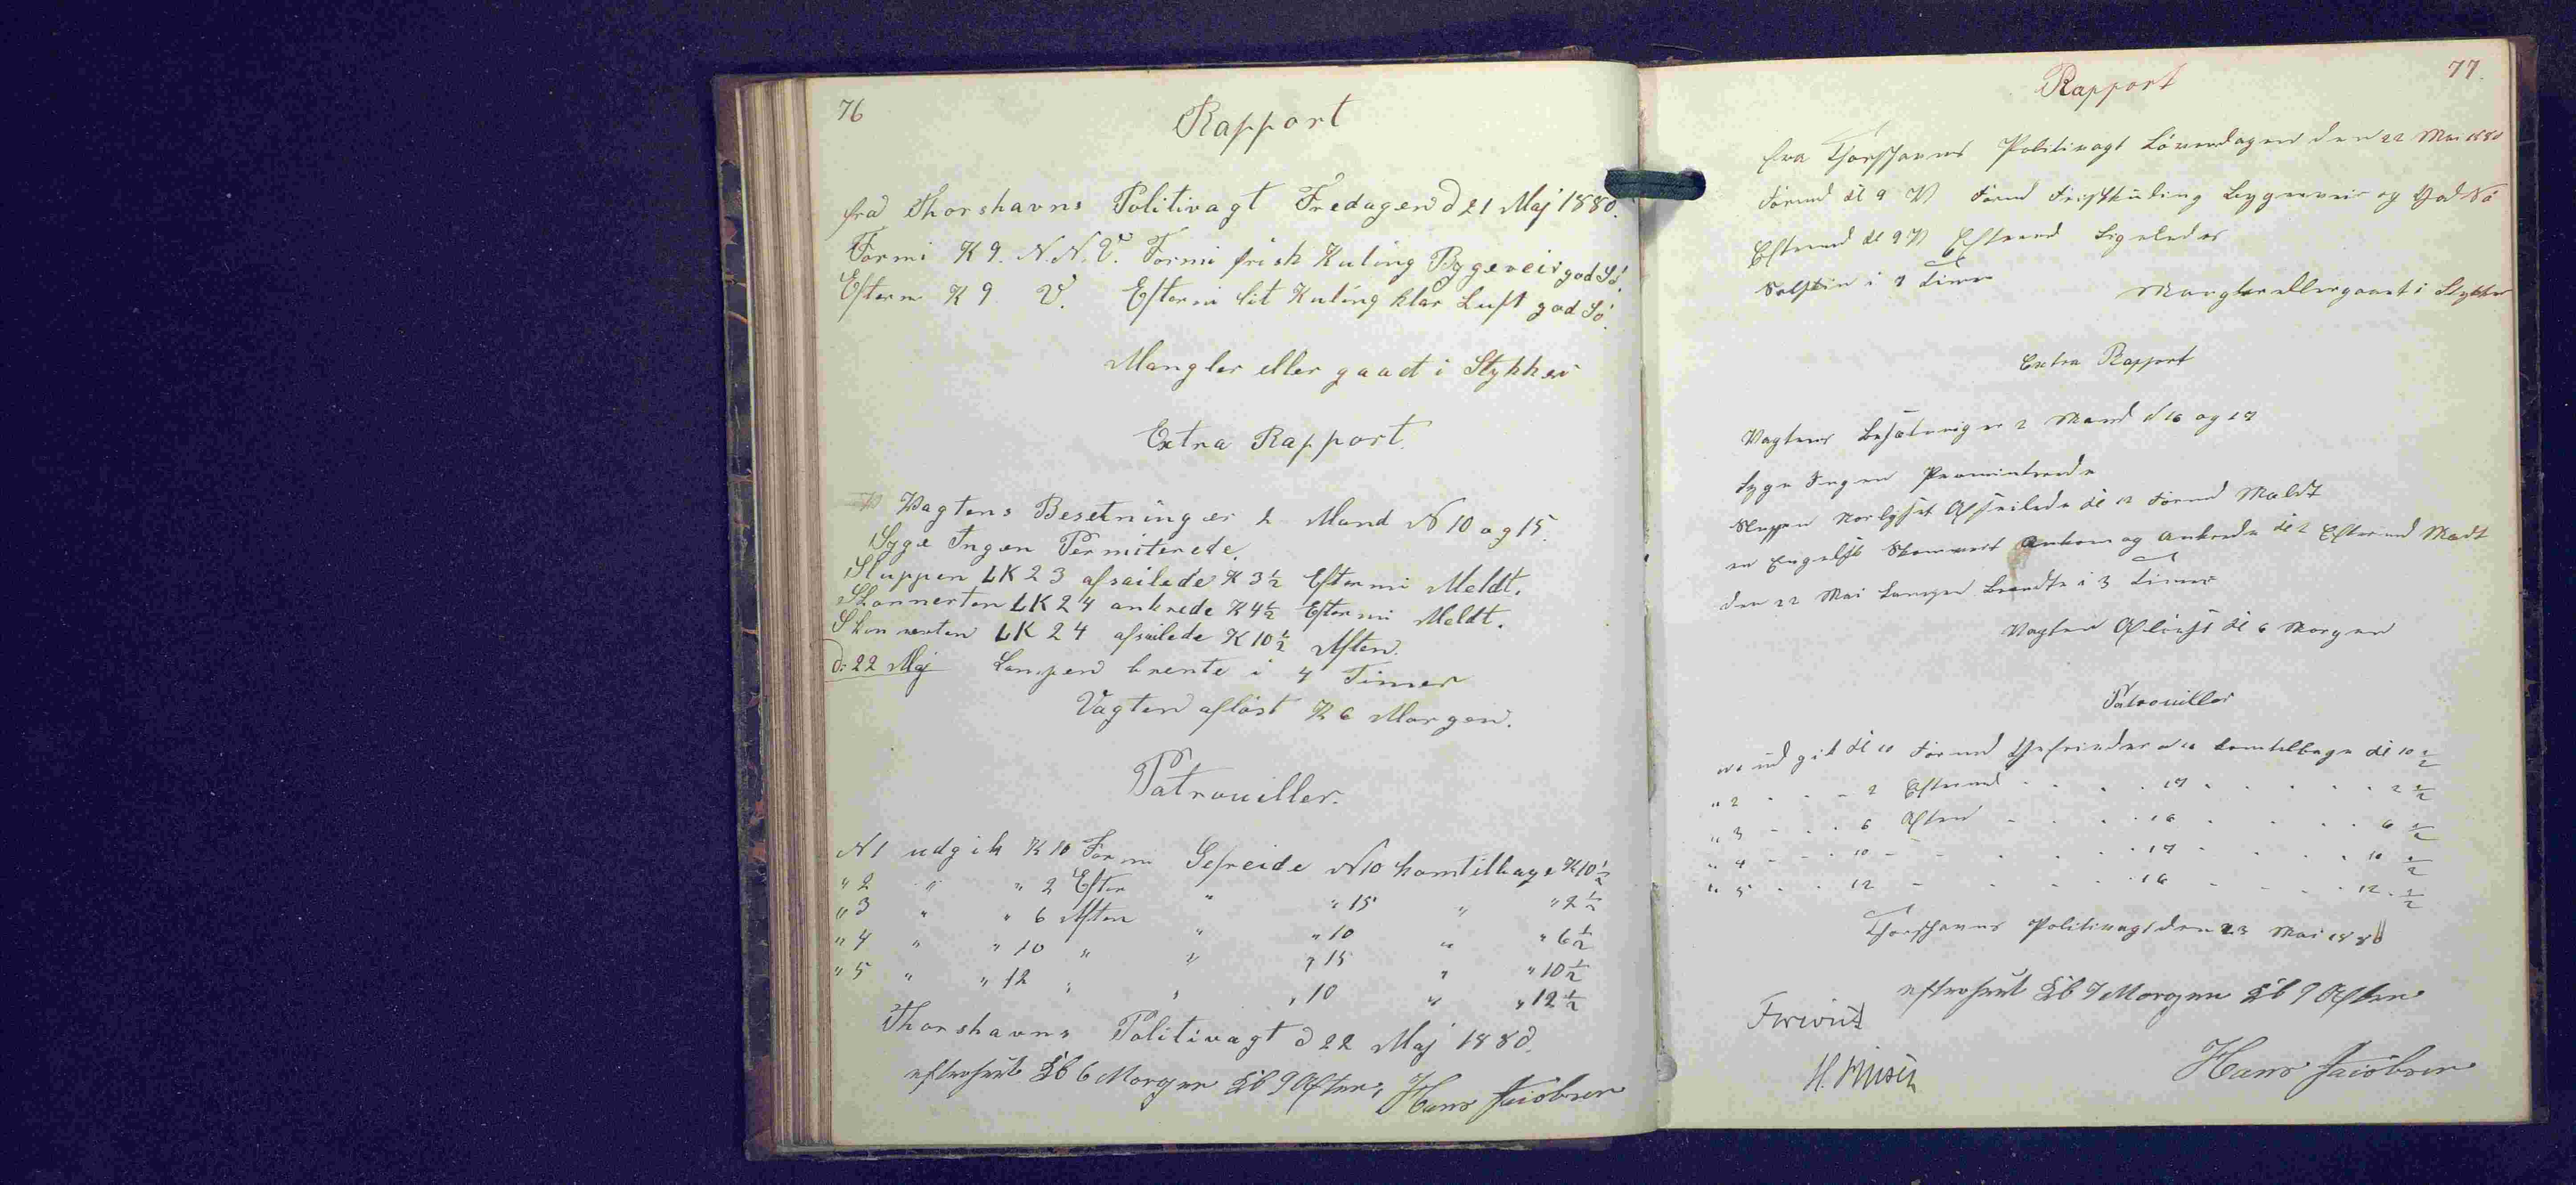 76
Rapport
fra Thorshavns Politivagt Fredagen d 21 Maj 1880.
Formi K 9. N.N.V. Formi frisk Kuling Bygeveir god Sö.
Efterm K 9 V. Efterm lit Kuling klar Luft god Sö.
Mangler eller gaaet i Stykker
Extra Rapport.
Vagtens Besetning er 2 Mand N 10 og 15.
Syge Ingen Permiterede.
Sluppen LK 23 afsailede K 3½ Eftermi Meldt.
Skonnerten LK 24 ankrede K 4½ Eftermi Meldt.
Skonnerten LK 24 afsailede K 10½ Aften.
d: 22 Maj Lampen brente i 4 Timer
Vagten aflöst K 6 Morgen.
Patrouiller.
N 1 udgik K 10 Form Gefreide N 10 kom tilbage K 10½
" 2 " " 2 Efter " " 15 " " 2½
" 3 " " 6 Aften " " 10 " " 6½
" 4 " " 10 " " " 15 " " 10½
" 5 " " 12 " " " 10 " " 12½
Thorshavns Politivagt d 22 Maj 1880.
efterseet Kl 6 Morgen Kl 9 Aften; Hans Jacobsen
77.
Rapport
fra Thorshavns Politivagt Löverdagen den 22 Mai 1880
Formd Kl 9 V Formd Friskkuling Byggeveir og God Sö
Eftermd Kl 9 V Eftermd Ligeledes
Solskin i 7 Timer
Mangler eller gaaet i Stykker
Extra Rapport
Vagtens Besætning er 2 Mand N 16 og 17
Syge Ingen Permiterede
Sluppen Norlyset Afseilede Kl 12 Formd Meldt
en Engelsk Skonnert Ankom og Ankrede Kl 2 Eftermd Meldt
den 22 Mai Lampen Brendte i 3 Timer
Vagten Aflöst Kl 6 Morgen
Patrouiller
N 1 udgik Kl 10 Formd Gefreider N 16 kom tilbage Kl 10½
" 2 - - - 2 Eftermd - - - 17 - - - 2½
" 3 - - - 6 Aften - - - 16 - - - 6½
" 4 - - - 10 - - - - 17 - - - 10½
" 5 - - - 12 - - - - 16 - - - 12½
Thorshavns Politivagt den 23 Mai 1880
efterseet Kl 7 Morgen Kl 9 Aften
Hans Jacobsen